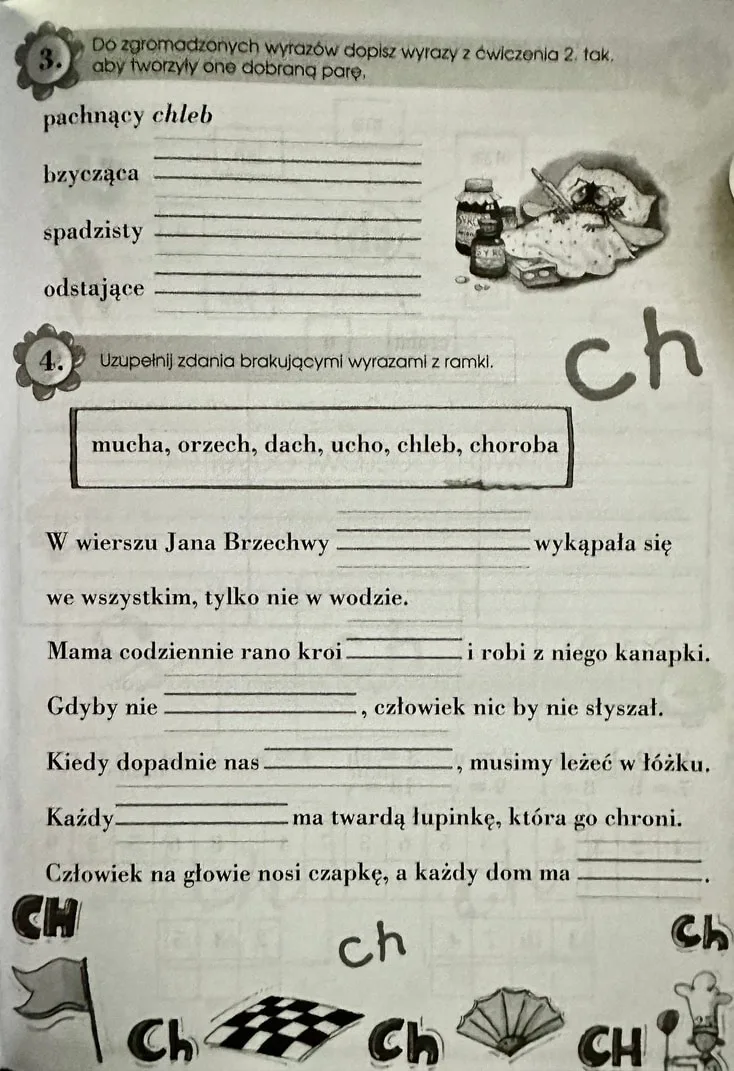 3. Do zgromadzonych wyrazów dopisz wyrazy z ćwiczenia 2. tak,
aby tworzyły one dobraną parę.
pachnący chleb
bzycząca
spadzisty
odstające
SYROP
SYRO
4. Uzupełnij zdania brakującymi wyrazami z ramki.
ch
mucha, orzech, dach, ucho, chleb, choroba
W wierszu Jana Brzechwy wykąpała się
we wszystkim, tylko nie w wodzie.
Mama codziennie rano kroi i robi z niego kanapki.
Gdyby nie , człowiek nic by nie słyszał.
Kiedy dopadnie nas , musimy leżeć w łóżku.
Każdy ma twardą łupinkę, która go chroni.
Człowiek na głowie nosi czapkę, a każdy dom ma .
CH
ch
Ch
Ch
Ch
CH